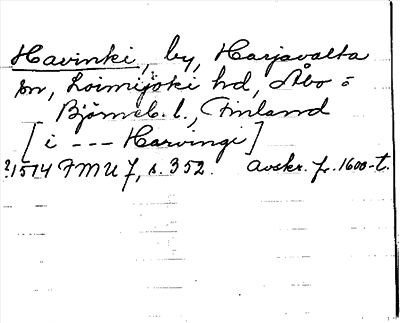 Havinki, by, Harjavalta
sn, Loimijoki hd, Åbo o
Björneb. l., Finland
[i --- Harvingi]
?1514 FMU 7, s. 352. Avskr. fr. 1600-t.